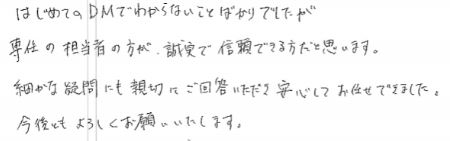 はじめてのDMでわからないことばかりでしたが
専任の担当者の方が、誠実で信頼できる方だと思います。
細かな疑問にも親切にご回答いただき安心してお任せできました。
今後ともよろしくお願いいたします。